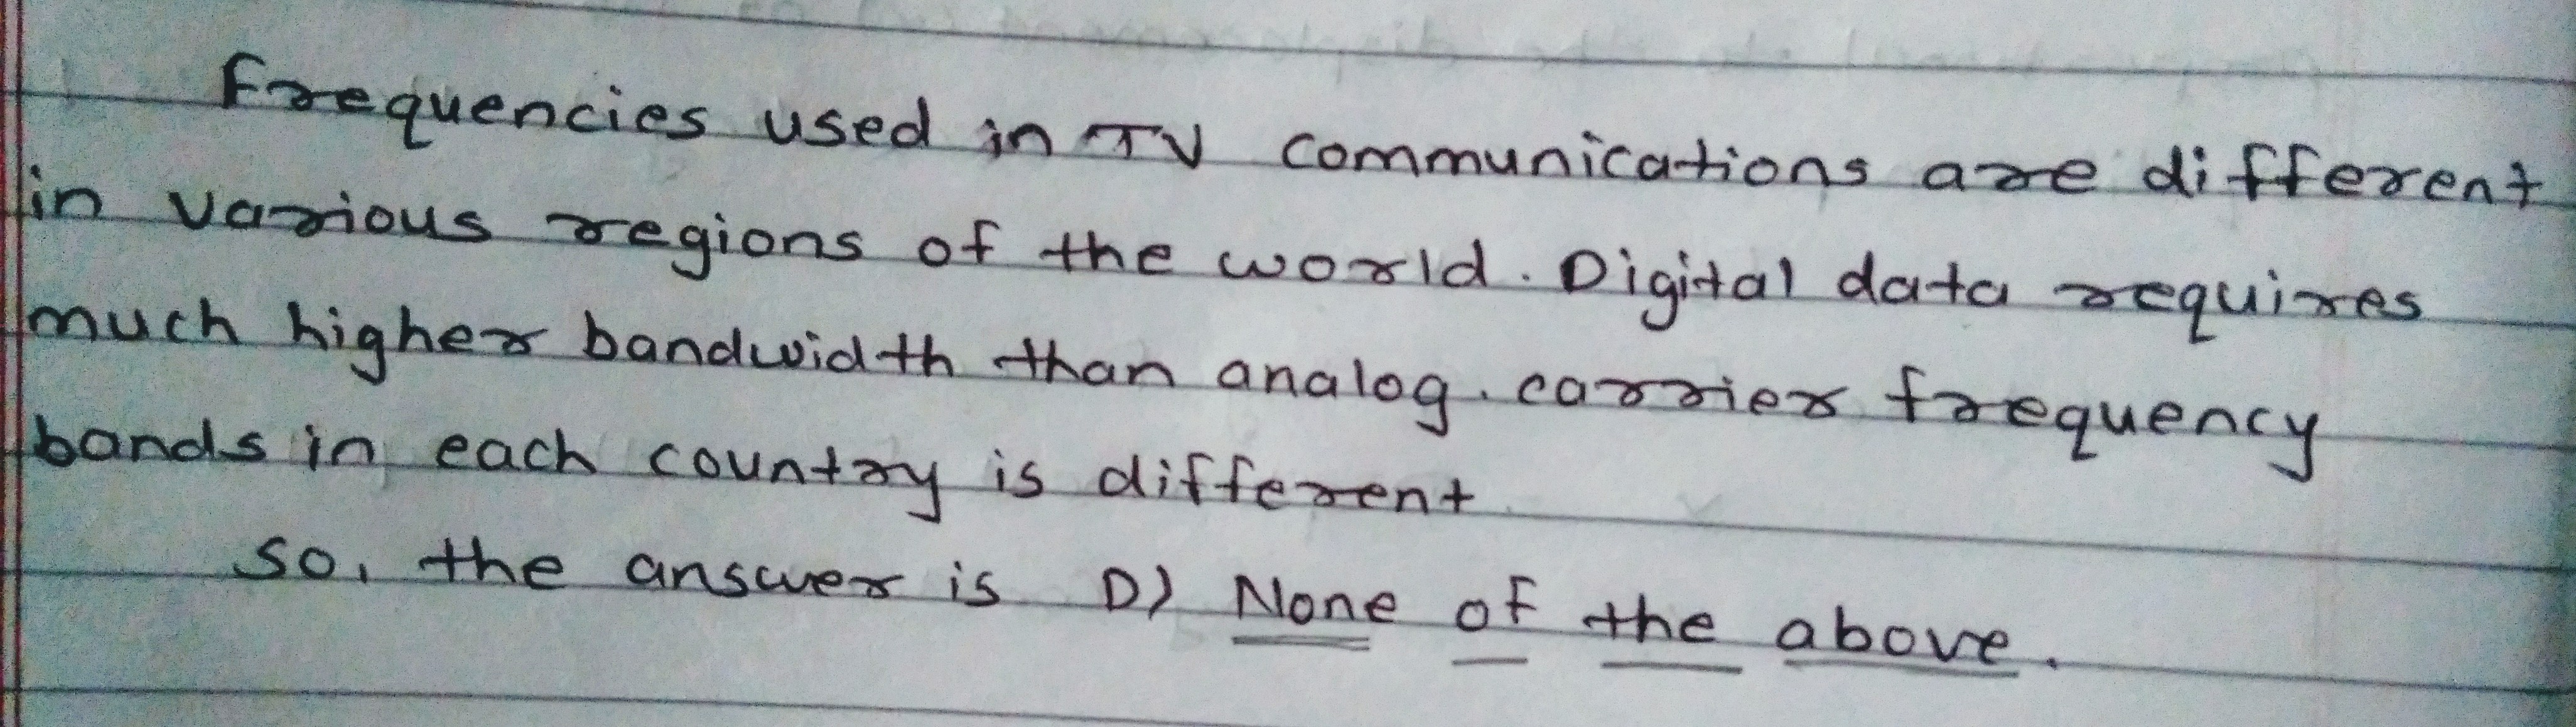 Frequencies used in TV communications are different
in various regions of the world. Digital data requires
much higher bandwidth than analog. carrier frequency
bands in each country is different
so, the answer is D) None of the above.